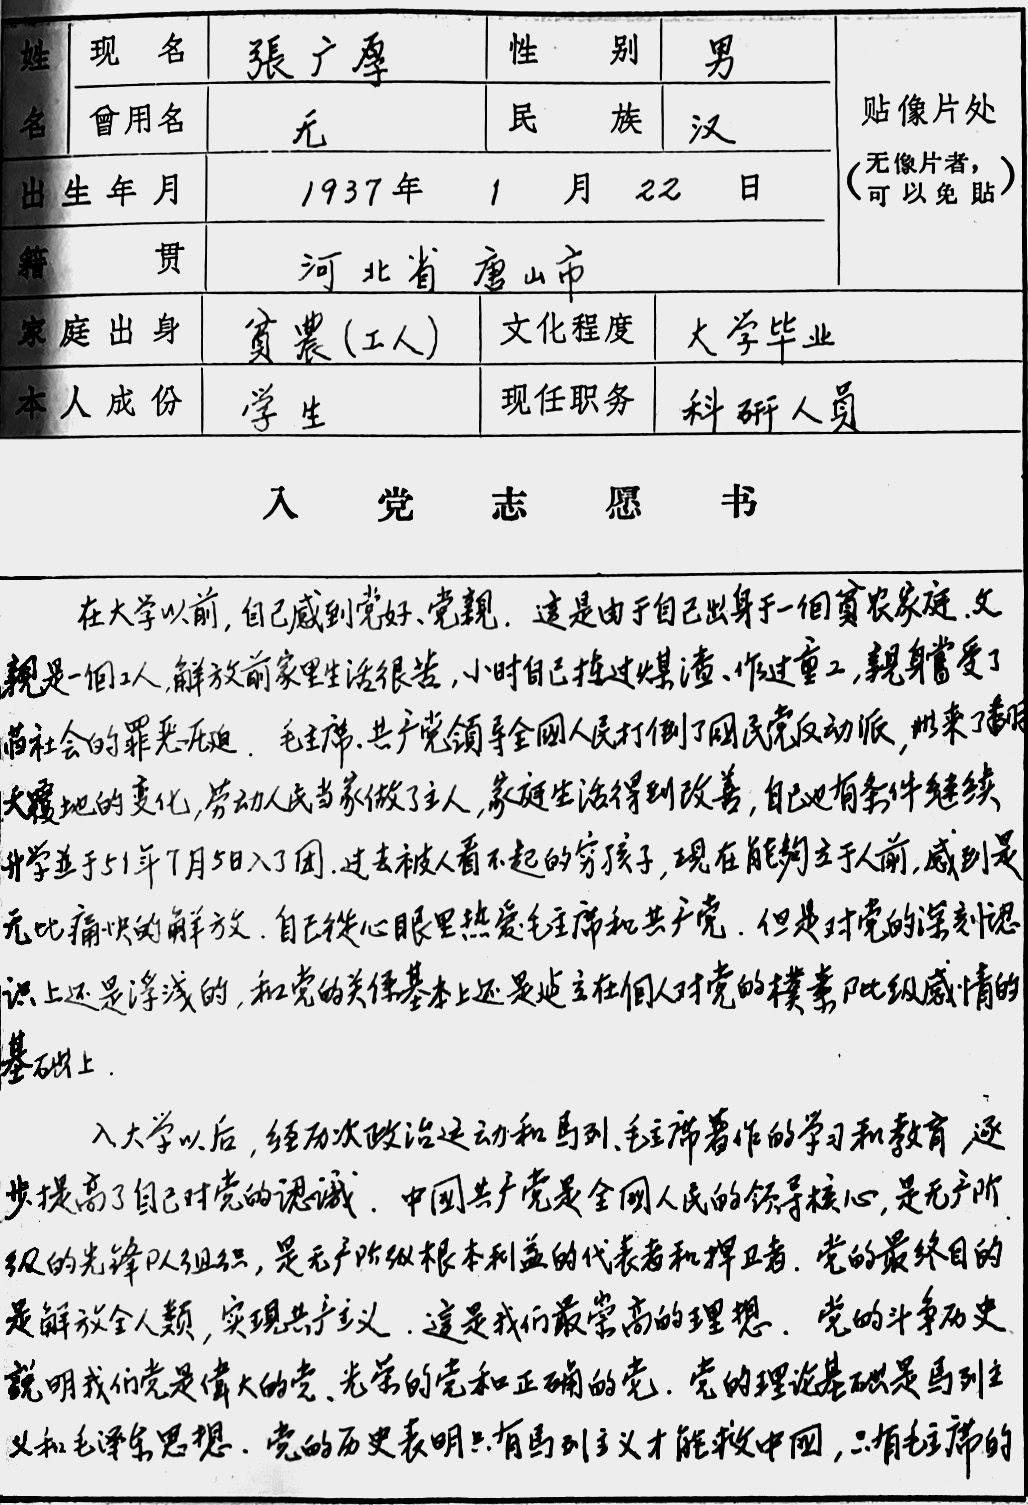 姓名 现名 張广厚 性别 男
曾用名 无 民族 汉
贴像片处
(无像片者,可以免貼)
出生年月 1937年 1月22日
籍贯 河北省唐山市
家庭出身 貧農(工人) 文化程度 大学毕业
本人成份 学生 现任职务 科研人员
入党志愿书
在大学以前,自己感到党好、党親.這是由于自己出身于一個貧农家庭.父
親是一個工人,解放前家里生活很苦,小时自己揀过煤渣、作过重工,親身嘗受了
旧社会的罪恶压迫.毛主席、共产党領导全國人民打倒了國民党反动派,带来了翻
天覆地的变化,劳动人民当家做了主人,家庭生活得到改善,自己也有条件继续
升学並于51年7月5日入了团.过去被人看不起的穷孩子,现在能夠立于人前,感到是
无比痛快的解放.自己從心眼里热爱毛主席和共产党.但是对党的深刻認
识上还是浮浅的,和党的关係基本上还是建立在個人对党的樸素阶级感情的
基础上.
入大学以后,经历次政治运动和馬列、毛主席著作的学习和教育,逐
步提高了自己对党的認識.中國共产党是全國人民的领导核心,是无产阶
级的先鋒队组织,是无产阶级根本利益的代表者和捍卫者.党的最终目的
是解放全人類,实现共产主义.這是我们最崇高的理想.党的斗争历史
説明我们党是偉大的党、光荣的党和正确的党.党的理论基础是馬列主
义和毛泽东思想.党的历史表明只有馬列主义才能救中國,只有毛主席的